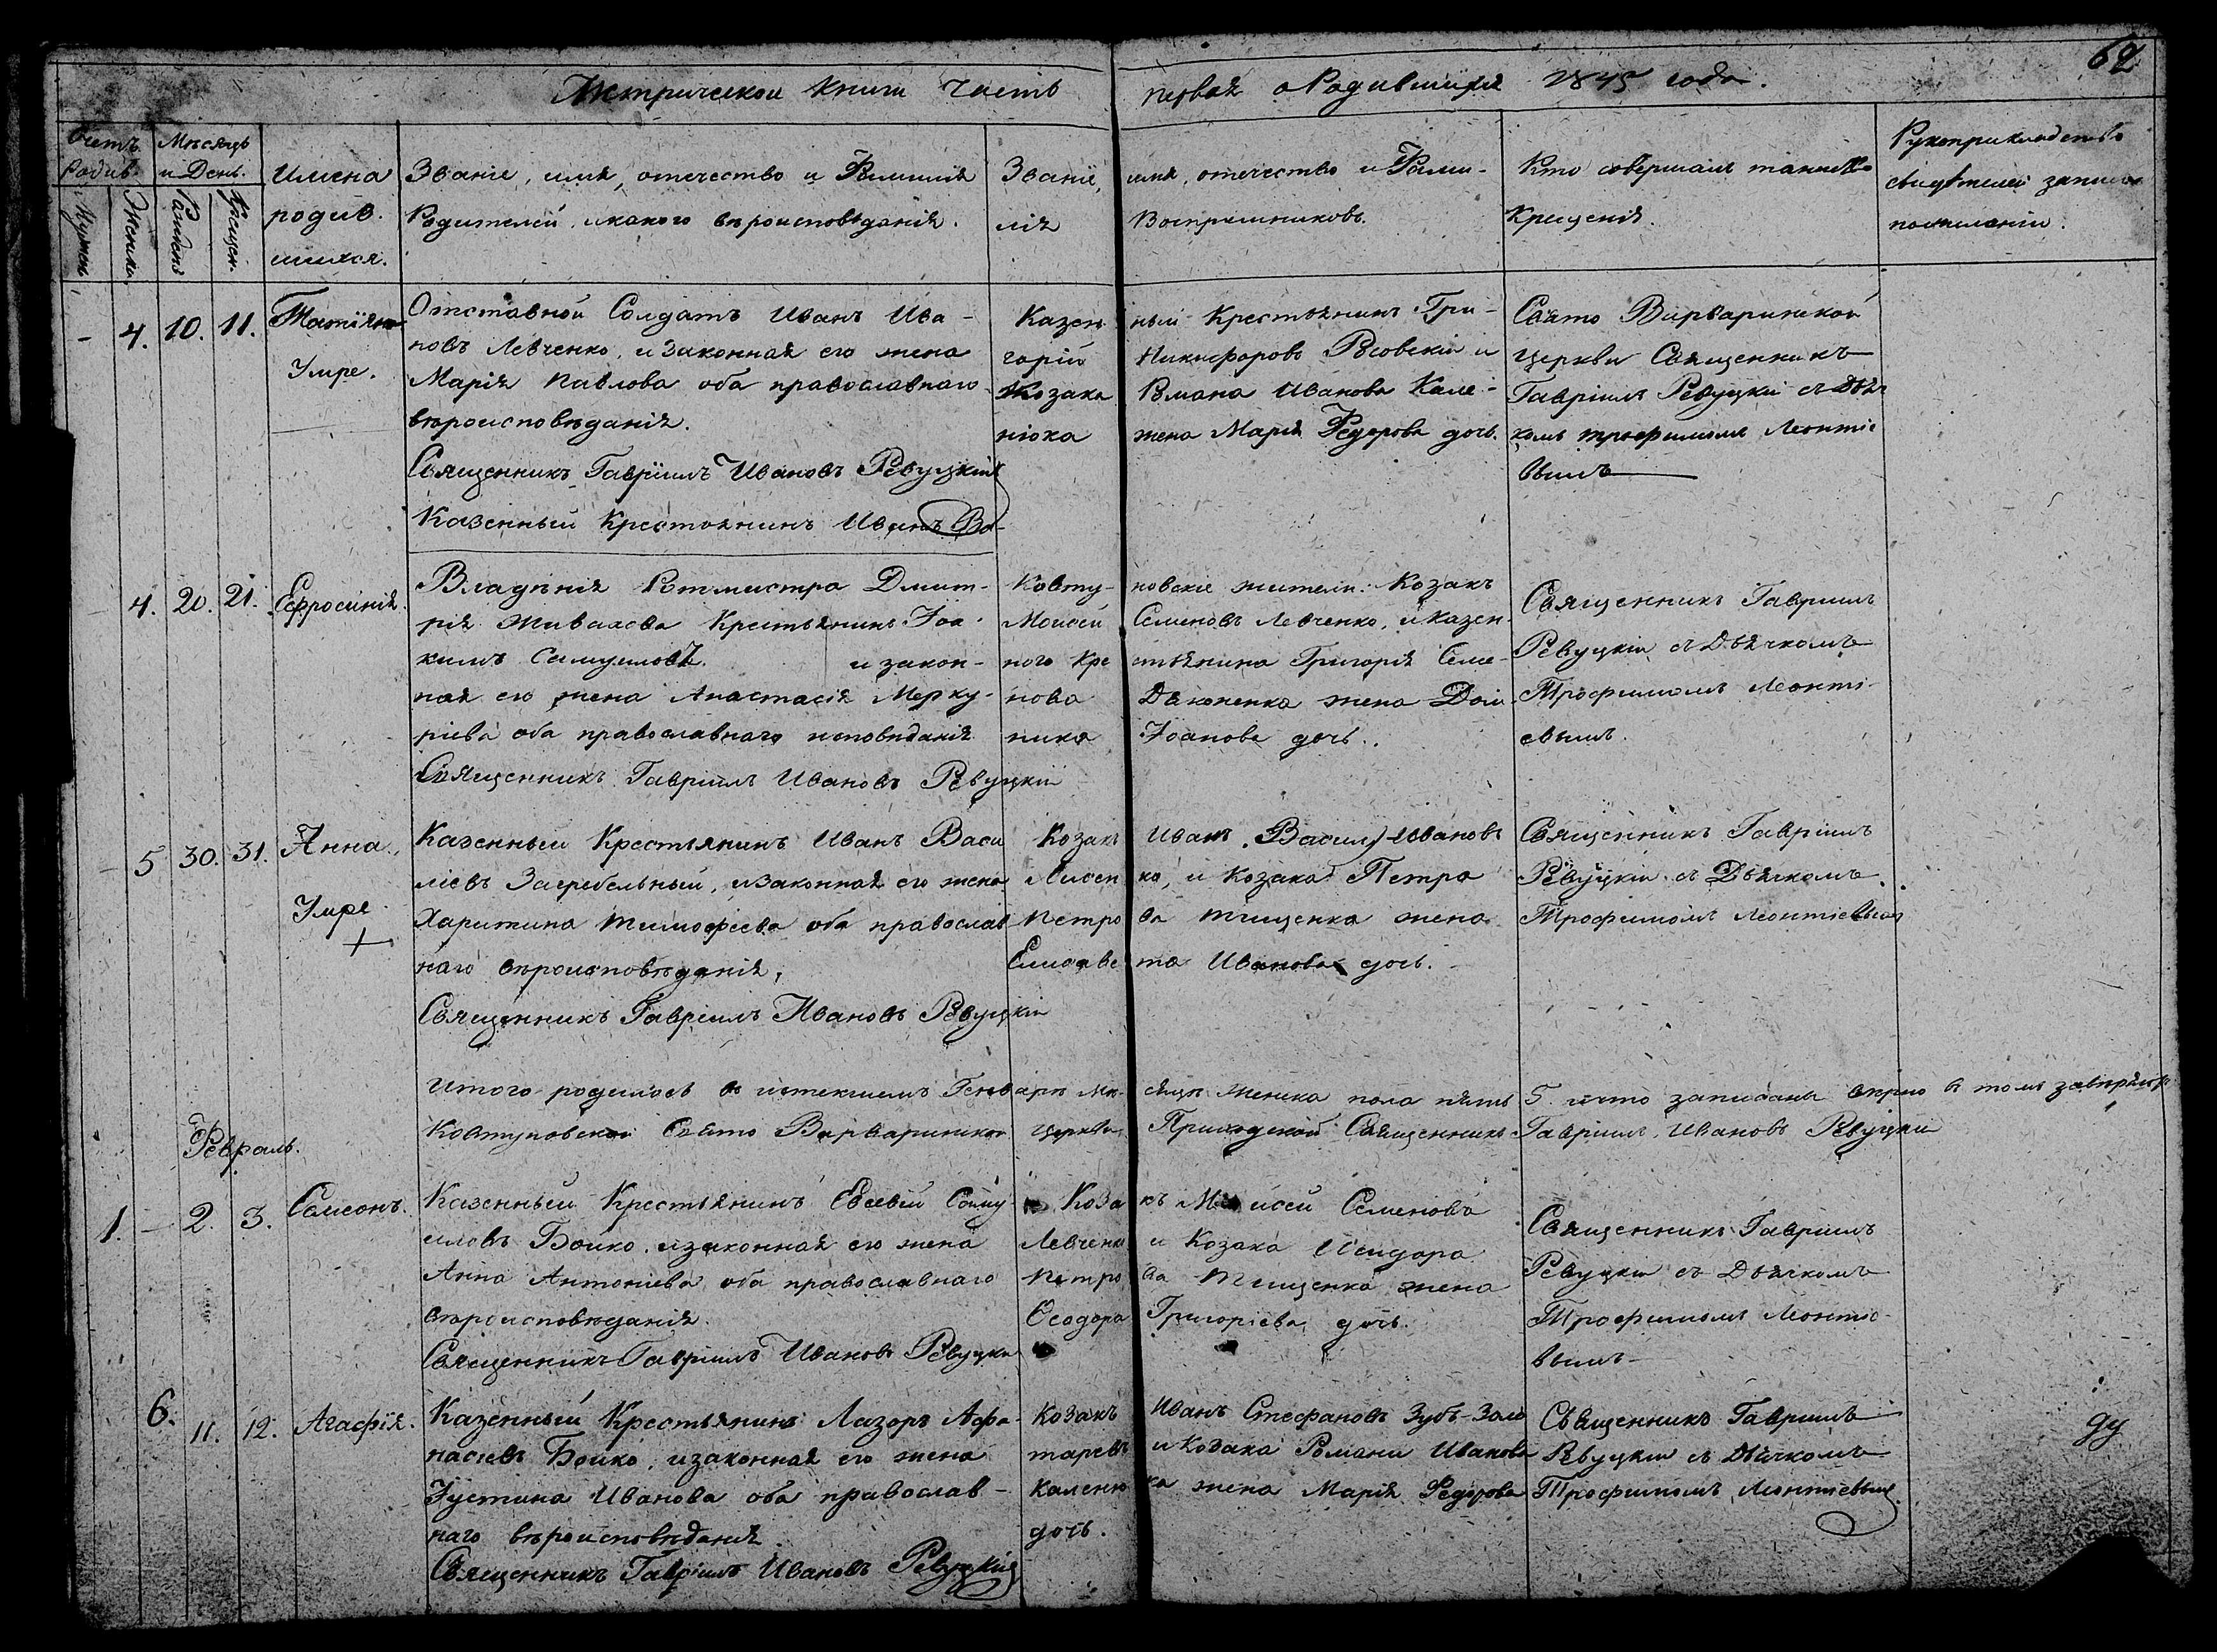 62
Метрической книги часть первая о Родившихся 1845 года.
Счетъ Родив.
Мѣсяцъ и День.
Мужеск
Женска
Рожденія
Крещен.
Имена родив шихся.
Званіе, имя, отечество и Фамилія
Родителей, и какого вѣроисповѣданія.
Званіе, имя, отечество и Фами-
лія Воспріемниковъ.
Кто совершалъ таинство
Крещенія.
Рукоприкладство
свидѣтелей записи
по желанію.
- 4. 10. 11.
Татіяна
Умре.
Отставной Солдатъ Иванъ Ива-
новъ Левченко, и Законная его жена
Марія Павлова оба православнаго
вѣроисповѣданія.
Священникъ Гавріилъ Ивановъ Ревуцкій
Казенный Крестьянинъ Иванъ Ва-
Казен ный Крестьянинъ Гри-
горій Никифоровъ Росовскій и
Козака Романа Иванова Кале-
нюка жена Марія Федорова дочь.
Свято Варваринской
церкви Священникъ
Гавріилъ Ревуцкій съ Дьяч
комъ Трофимомъ Леонтіе
вымъ
- 4. 20. 21.
Ефросинія.
Владѣнія Ротмистра Дмит-
рія Живахова Крестьянинъ Іоа-
кимъ Самуиловъ. и закон-
ная его жена Анастасія Мерку-
ріева оба православнаго исповѣданія
Священникъ Гавріилъ Ивановъ Ревуцкій
Ковту- новскіе жители: Козакъ
Моисей Семеновъ Левченко, и казен-
ного Кре стьянина Григорія Семе-
нова Дьяконенка жена Дом-
ника Іоанова дочь.
Священникъ Гавріилъ
Ревуцкій съ Дьячкомъ
Трофимомъ Леонті-
евымъ.
- 5 30. 31.
Анна.
Умре
+
Казенный Крестьянинъ Иванъ Васи
ліевъ Загребельный, и законная его жена
Харитина Тимофіева оба православ
наго вѣроисповѣданія,
Священникъ Гавріилъ Ивановъ Ревуцкій
Козакъ Иванъ Васил Ивановъ
Лисен ко, и Козака Петра
Петро ва Тищенка жена
Елисаве та Иванова дочь.
Священникъ Гавріилъ
Ревуцкій съ Дьячкомъ
Трофимомъ Леонтіевымъ
Итого родилось въ истекшемъ Генварѣ мѣ- сяцѣ Женска пола пять 5. и что записаны вѣрно въ томъ завѣряетъ
Ковтуновской Свято Варваринской церкви Приходской Священникъ Гавріилъ Ивановъ Ревуцкій
Февраль.
1. - 2. 3.
Самсонъ.
Казенный Крестьянинъ Евсевій Саму-
иловъ Бойко, и законная его жена
Анна Антоніева оба православнаго
вѣроисповѣданія.
Священникъ Гавріилъ Ивановъ Ревуцкі
Коза къ Моисей Семеновъ
Левченко и Козака Исидора
Петро ва Тищенка жена
Ѳеодора Григоріева дочь.
Священникъ Гавріилъ
Ревуцкій съ Дьячкомъ
Трофимомъ Леонтіе-
вымъ
6. 11. 12.
Агафія.
Казенный Крестьянинъ Лазорь Афа-
насіевъ Бойко, и законная его жена
Іустина Иванова оба православ-
наго вѣроисповѣданія.
Священникъ Гавріилъ Ивановъ Ревуцкій
Козакъ Иванъ Стефановъ Зубъ-Золо
таревъ и Козака Романа Иванова
Каленю ка жена Марія Федорова
дочь.
Священникъ Гавріилъ
Ревуцкій съ Дьячкомъ
Трофимомъ Леонтіевымъ.